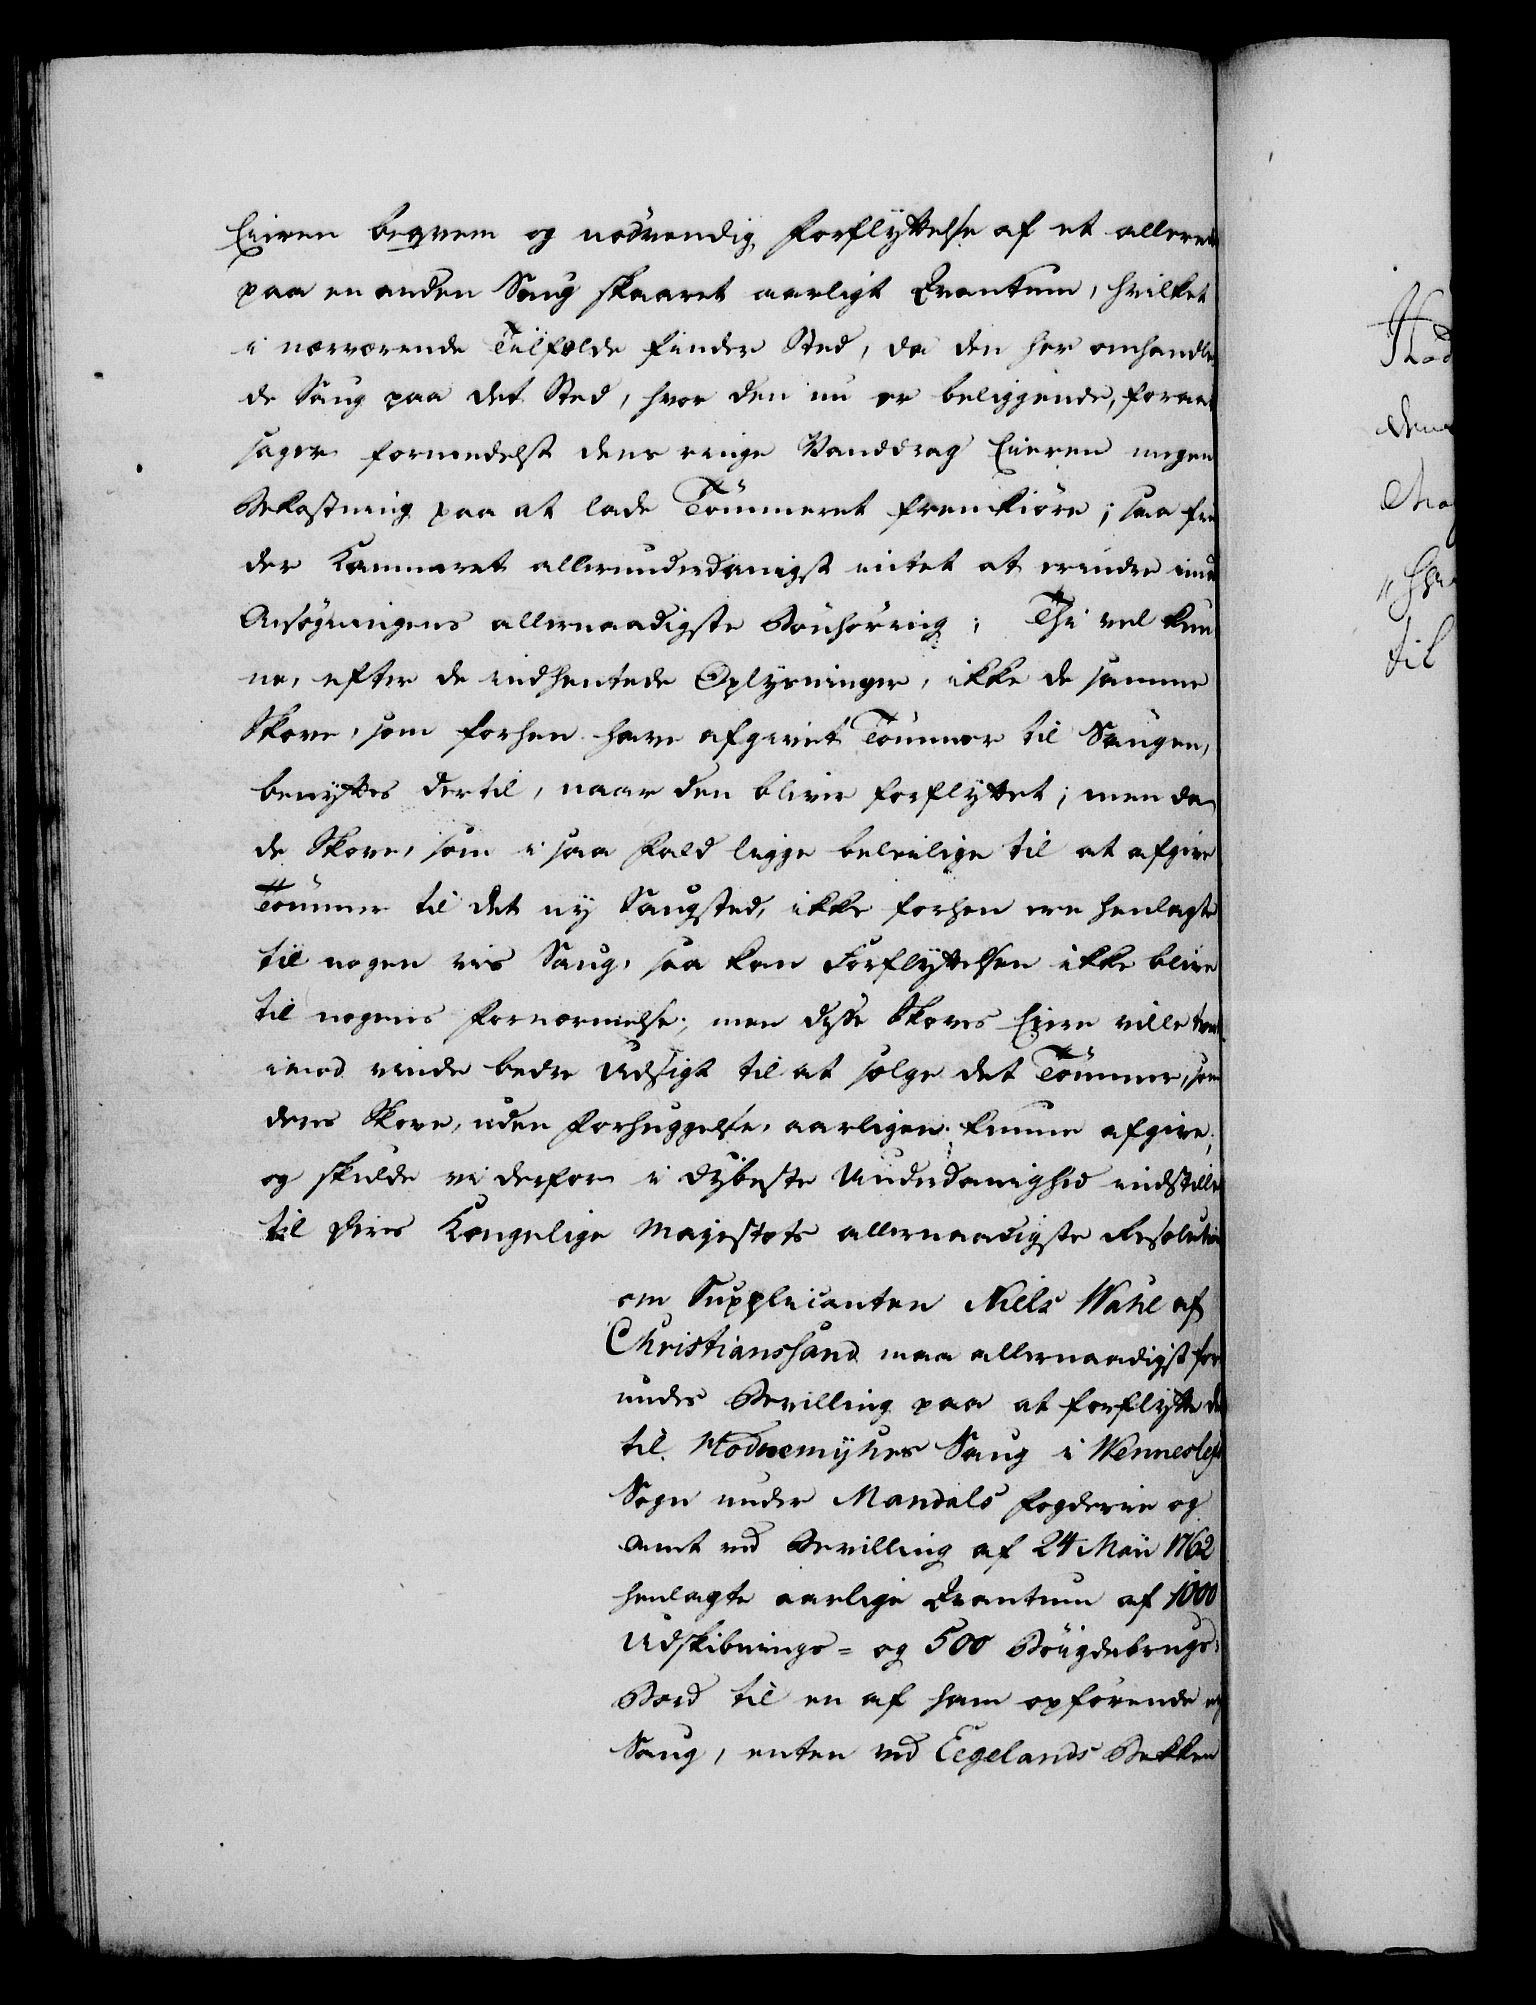 Eieren beqvem og nødvendig Forflyttelse af et allere
paa en anden Saug skaaret aarligt Qvantum, hvilket
i nærværende Tilfælde finder Sted, da den her omhandle
de Saug paa det Sted, hvor den nu er beliggende, foraar
sager formedelst dens ringe Vanddrag Eieren megen
Bekostning paa at lade Tømmeret fremkiøre; saa fin
der Kammeret allerunderdanigst intet at erindre imod
Ansøgningens allernaadigste Bønhøring; Thi vel kun
ne, efter de indhentede Oplysninger, ikke de samme
Skove, som forhen have afgivet Tømmer til Saugen,
benyttes dertil, naar den bliver forflyttet; men da
de Skove, som i saa Fald ligge beleilige til at afgive
Tømmer til det ny Saugsted, ikke forhen ere henlagte
til nogen vis Saug, saa kan Forflyttelsen ikke blive
til nogens Fornærmelse; men disse Skoves Eiere ville tvert
imod vinde bedre Udsigt til at sælge det Tømmer, som
deres Skove, uden Forhuggelse, aarligen kunne afgive;
og skulde vi derfor i dybeste Underdanighed indstille
til Deres Kongelige Majestæts allernaadigste Resolution
om Supplicanten Niels Wahl af
Christianssand maa allernaadigst for
undes Bevilling paa at forflytte det
til Hodnemyhrs Saug i Wennesløfs
Sogn under Mandals Fogderie og
Amt ved Bevilling af 24 Maii 1762
henlagte aarlige Qvantum af 1000
Udskibnings= og 500 Bøigdebrugs=
Bord til en af ham opførende ny
Saug, enten ved Eegelands Bekken